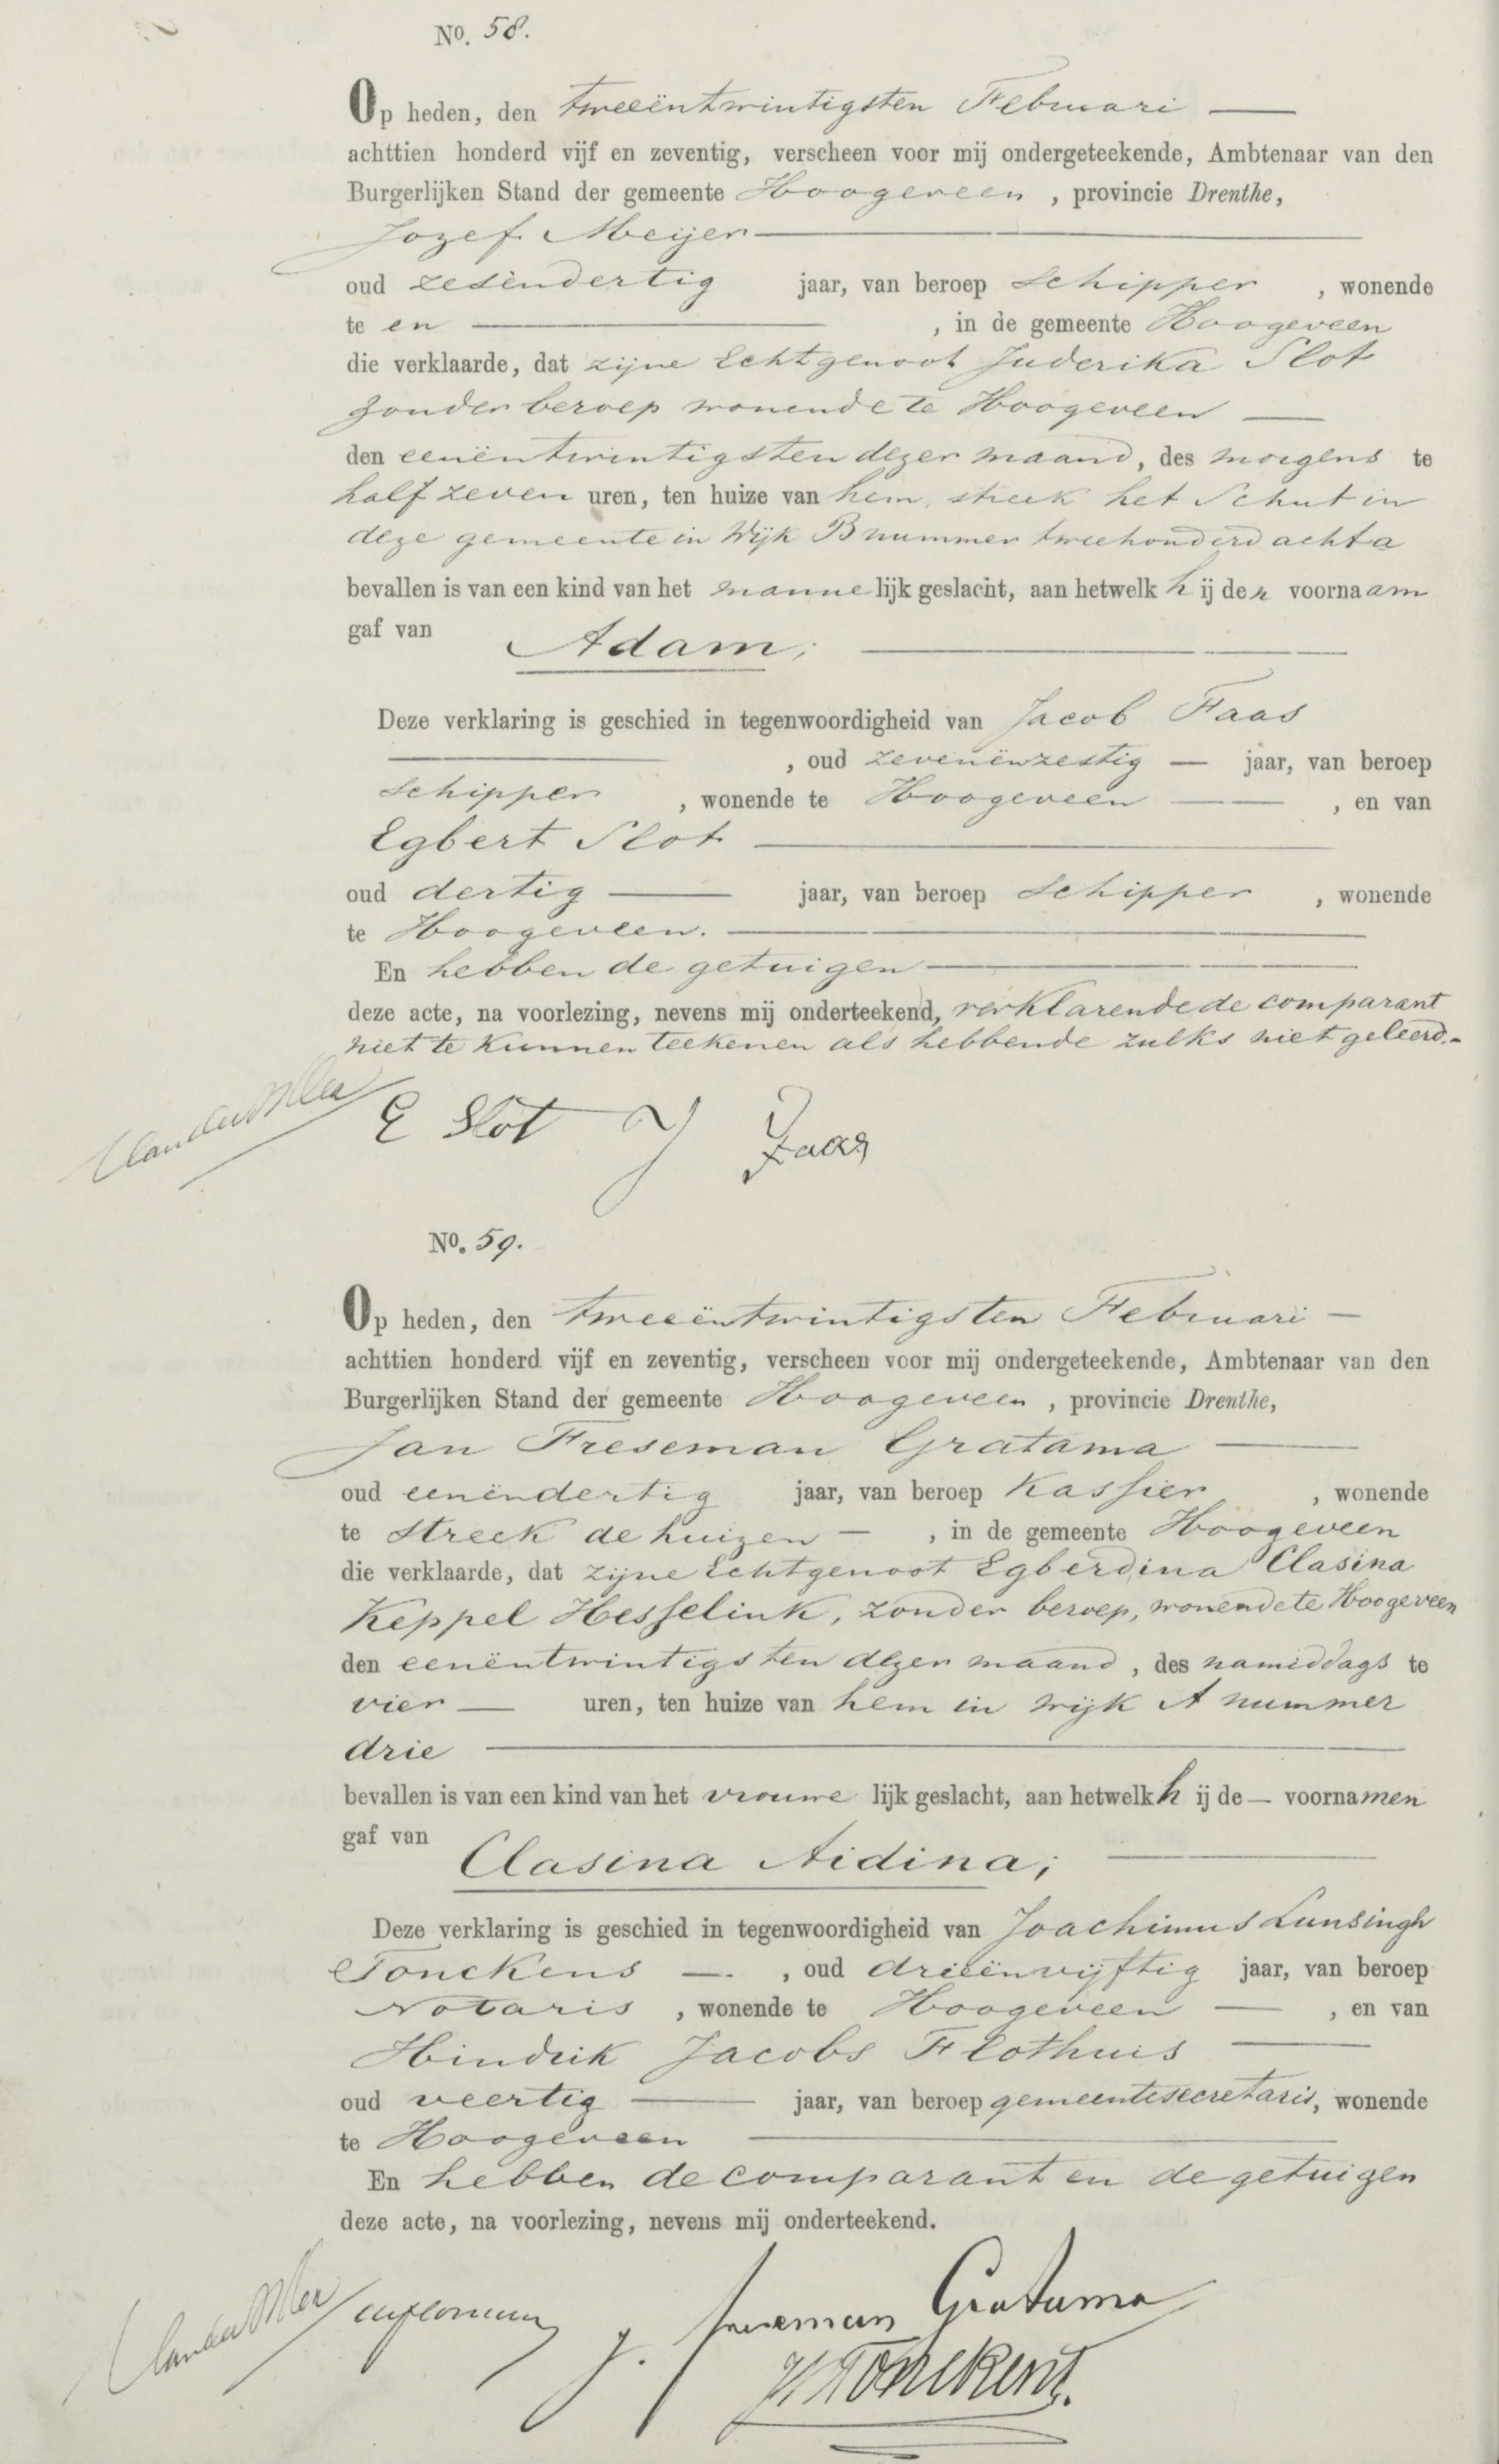 No. 58.
Op heden, den tweeëntwintigsten Februari
achttien honderd vijf en zeventig, verscheen voor mij ondergeteekende, Ambtenaar van den
Burgerlijken Stand der gemeente Hoogeveen, provincie Drenthe,
Jozef Meijer
oud zesendertig jaar, van beroep Schipper, wonende
te en, in de gemeente Hoogeveen
die verklaarde, dat zijne Echtgenoot Juderika Slot
zonder beroep wonende te Hoogeveen
den eenëntwintigsten dezer maand, des morgens te
half zeven uren, ten huize van hem, streek het Schut in
deze gemeente in Wijk B nummer tweehonderd acht a
bevallen is van een kind van het mannelijk geslacht, aan hetwelk hij den voornaam
gaf van Adam;
Deze verklaring is geschied in tegenwoordigheid van Jacob Faas
, oud zevenënzestig jaar, van beroep
Schipper, wonende te Hoogeveen, en van
Egbert Slot
oud dertig jaar, van beroep Schipper, wonende
te Hoogeveen.
En hebben de getuigen
deze acte, na voorlezing, nevens mij onderteekend, verklarende de comparant
niet te kunnen teekenen als hebbende zulks niet geleerd.-
E Slot J Faas
No. 59.
Op heden, den tweeëntwintigsten Februari
achttien honderd vijf en zeventig, verscheen voor mij ondergeteekende, Ambtenaar van den
Burgerlijken Stand der gemeente Hoogeveen, provincie Drenthe,
Jan Freseman Gratama
oud eenëndertig jaar, van beroep Kassier, wonende
te Streek de huizen, in de gemeente Hoogeveen
die verklaarde, dat zijne Echtgenoot Egberdina Clasina
Keppel Hesselink, zonder beroep, wonende te Hoogeveen
den eenëntwintigsten dezer maand, des namiddags te
vier uren, ten huize van hem in wijk A nummer
drie
bevallen is van een kind van het vrouwelijk geslacht, aan hetwelk hij de voornamen
gaf van Clasina Aidina;
Deze verklaring is geschied in tegenwoordigheid van Joachimus Lunsingh
Tonckens, oud drieënvijftig jaar, van beroep
Notaris, wonende te Hoogeveen, en van
Hindrik Jacobs Flothuis
oud veertig jaar, van beroep gemeentesecretaris, wonende
te Hoogeveen
En hebben de comparant en de getuigen
deze acte, na voorlezing, nevens mij onderteekend.
J. Freseman Gratama
Tonckens.